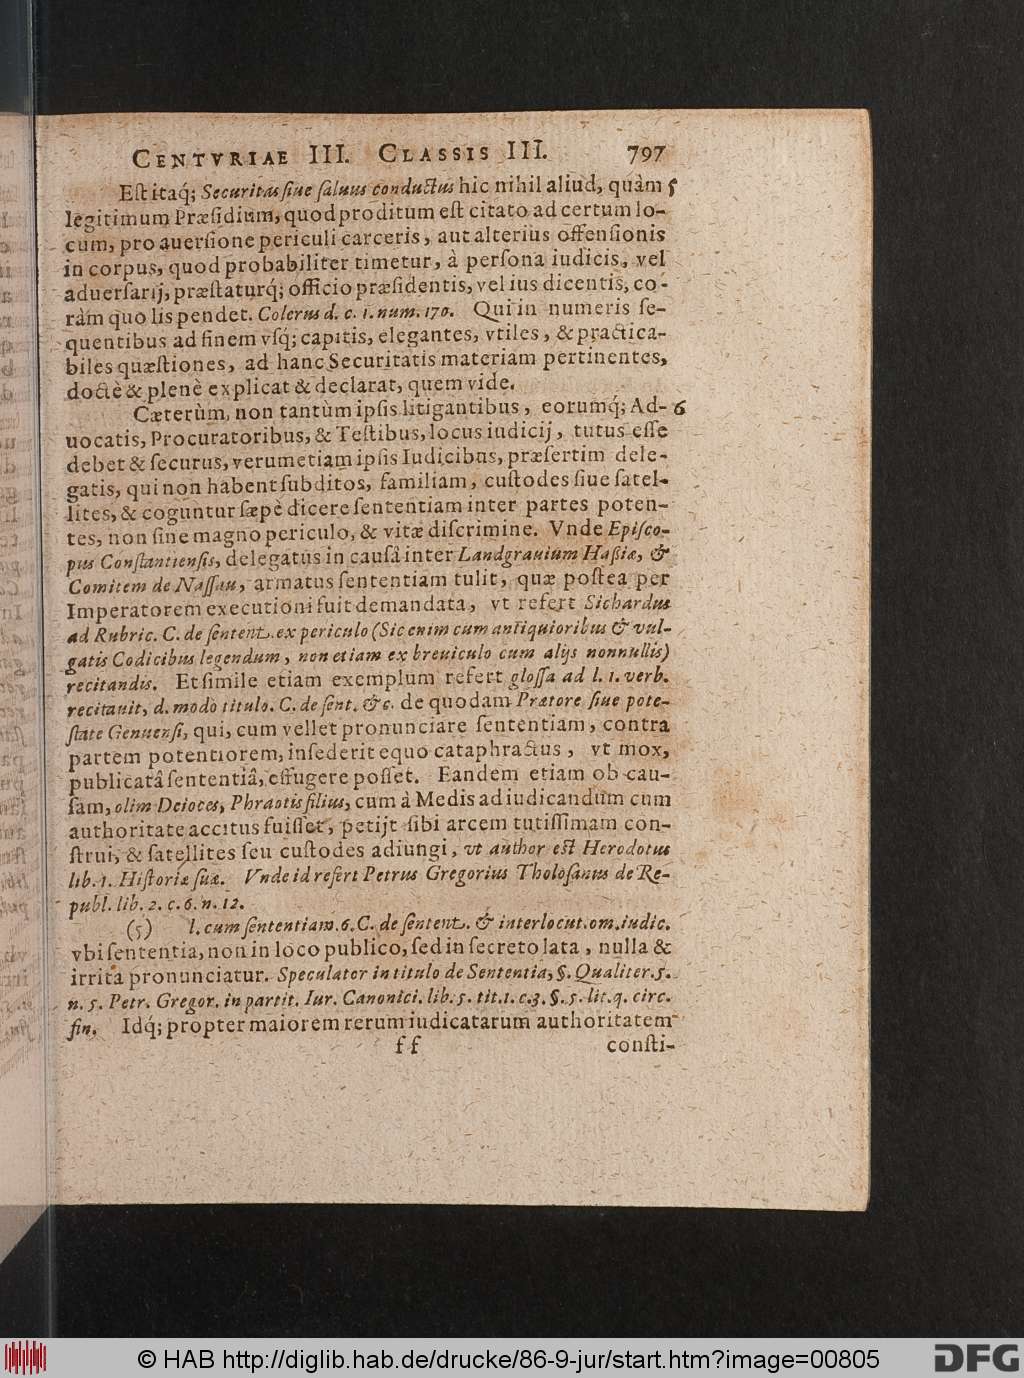 CENTVRIAE III. CLASSIS III. 797
Eſt itaq́; Securitas ſiue ſaluus conductus hic nihil aliud, quàm 5
legitimum Præſidium, quod proditum eſt citato ad certum lo-
cum, pro auerſione periculi carceris, aut alterius offenſionis
in corpus, quod probabiliter timetur, à perſona iudicis, vel
aduerſarij, præſtaturq́; officio præſidentis, vel ius dicentis, co-
ràm quo lis pendet. Colerus d. c. 1. num. 170. Qui in numeris ſe-
quentibus ad finem vſq́; capitis, elegantes, vtiles, & practica-
biles quæſtiones, ad hanc Securitatis materiam pertinentes,
doctè & plenè explicat & declarat, quem vide.
Cæterùm, non tantùm ipſis litigantibus, eorumq́; Ad- 6
uocatis, Procuratoribus, & Teſtibus, locus iudicij, tutus eſſe
debet & ſecurus, verum etiam ipſis Iudicibus, præſertim dele-
gatis, qui non habent ſubditos, familiam, cuſtodes ſiue ſatel-
lites, & coguntur ſæpè dicere ſententiam inter partes poten-
tes, non ſine magno periculo, & vitæ diſcrimine. Vnde Epiſco-
pus Conſtantienſis, delegatus in cauſâ inter Landgrauium Haſsiæ, &
Comitem de Naſſau, armatus ſententiam tulit, quæ poſtea per
Imperatorem executioni fuit demandata, vt refert Sichardus
ad Rubric. C. de ſentent. ex periculo (Sic enim cum antiquioribus & vul-
gatis Codicibus legendum, non etiam ex breuiculo cum alijs nonnullis)
recitandis. Et ſimile etiam exemplum refert gloſſa ad l. 1. verb.
recitauit, d. modò titulo. C. de ſent. &c. de quodam Prætore ſiue pote-
ſtate Genuenſi, qui, cum vellet pronunciare ſententiam, contra
partem potentiorem, inſederit equo cataphractus, vt mox,
publicatâ ſententiâ, effugere poſſet. Eandem etiam ob cau-
ſam, olim Deioces, Phraotis filius, cum à Medis ad iudicandum cum
authoritate accitus fuiſſet, petijt ſibi arcem tutiſſimam con-
ſtrui, & ſatellites ſeu cuſtodes adiungi, vt author eſt Herodotus
lib. 1. Hiſtoriæ ſuæ. Vnde id refert Petrus Gregorius Tholoſanus de Re-
publ. lib. 2. c. 6. n. 12.
(5) l. cum ſententiam. 6. C. de ſentent. & interlocut. om. iudic.
vbi ſententia, non in loco publico, ſed in ſecreto lata, nulla &
irrita pronunciatur. Speculator in titulo de Sententia, §. Qualiter. 5.
n. 5. Petr. Gregor. in partit. Iur. Canonici. lib. 5. tit. 1. c. 3. §. 5. lit. q. circ.
fin. Idq́; propter maiorem rerum iudicatarum authoritatem
ff conſti-
© HAB http://diglib.hab.de/drucke/86-9-jur/start.htm?image=00805
DFG